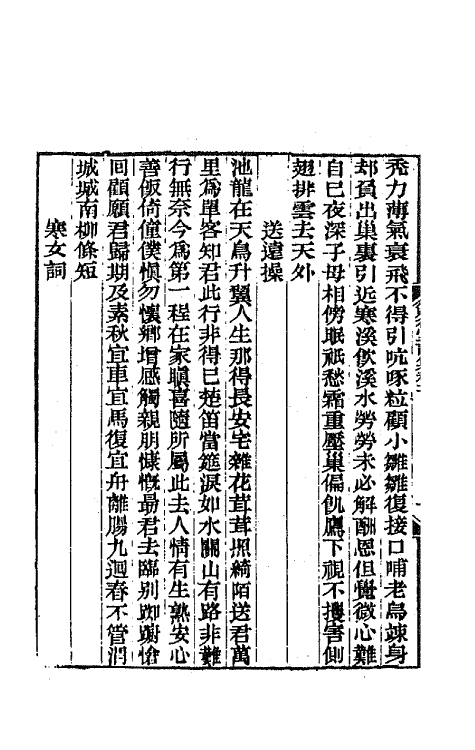 禿力薄氣衰飛不得引吭啄粒顧小雛雛復接口哺老烏竦身
却負出巢裏引近寒溪飲溪水勞勞未必解酬恩但覺微心難
自巳夜深子母相傍眠祇愁霜重壓巢偏飢鷹下視不攫害側
翅排雲去天外
送遠操
池龍在天鳥升翼人生那得長安宅雜花茸茸照綺陌送君萬
里爲單客知君此行非得已楚笛當筵淚如水關山有路非難
行無奈今爲第一程在家嗔喜隨所屬此去人情有生熟安心
善飯倚僮僕愼勿懷鄉增感觸親朋慷慨最君去臨別踟躕愴
回顧願君歸期及素秋宜車宜馬復宜舟離腸九迴春不管洞
城城南柳條短
寒女詞